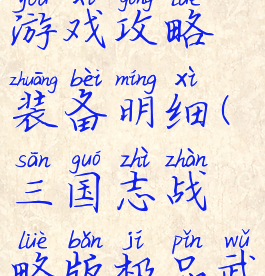 yóu xì gōng lüè
游戏攻略
zhuāng bèi míng xì
装备明细(
sān guó zhì zhàn
三国志战
lüè bǎn jí pǐn wǔ
略版极品武